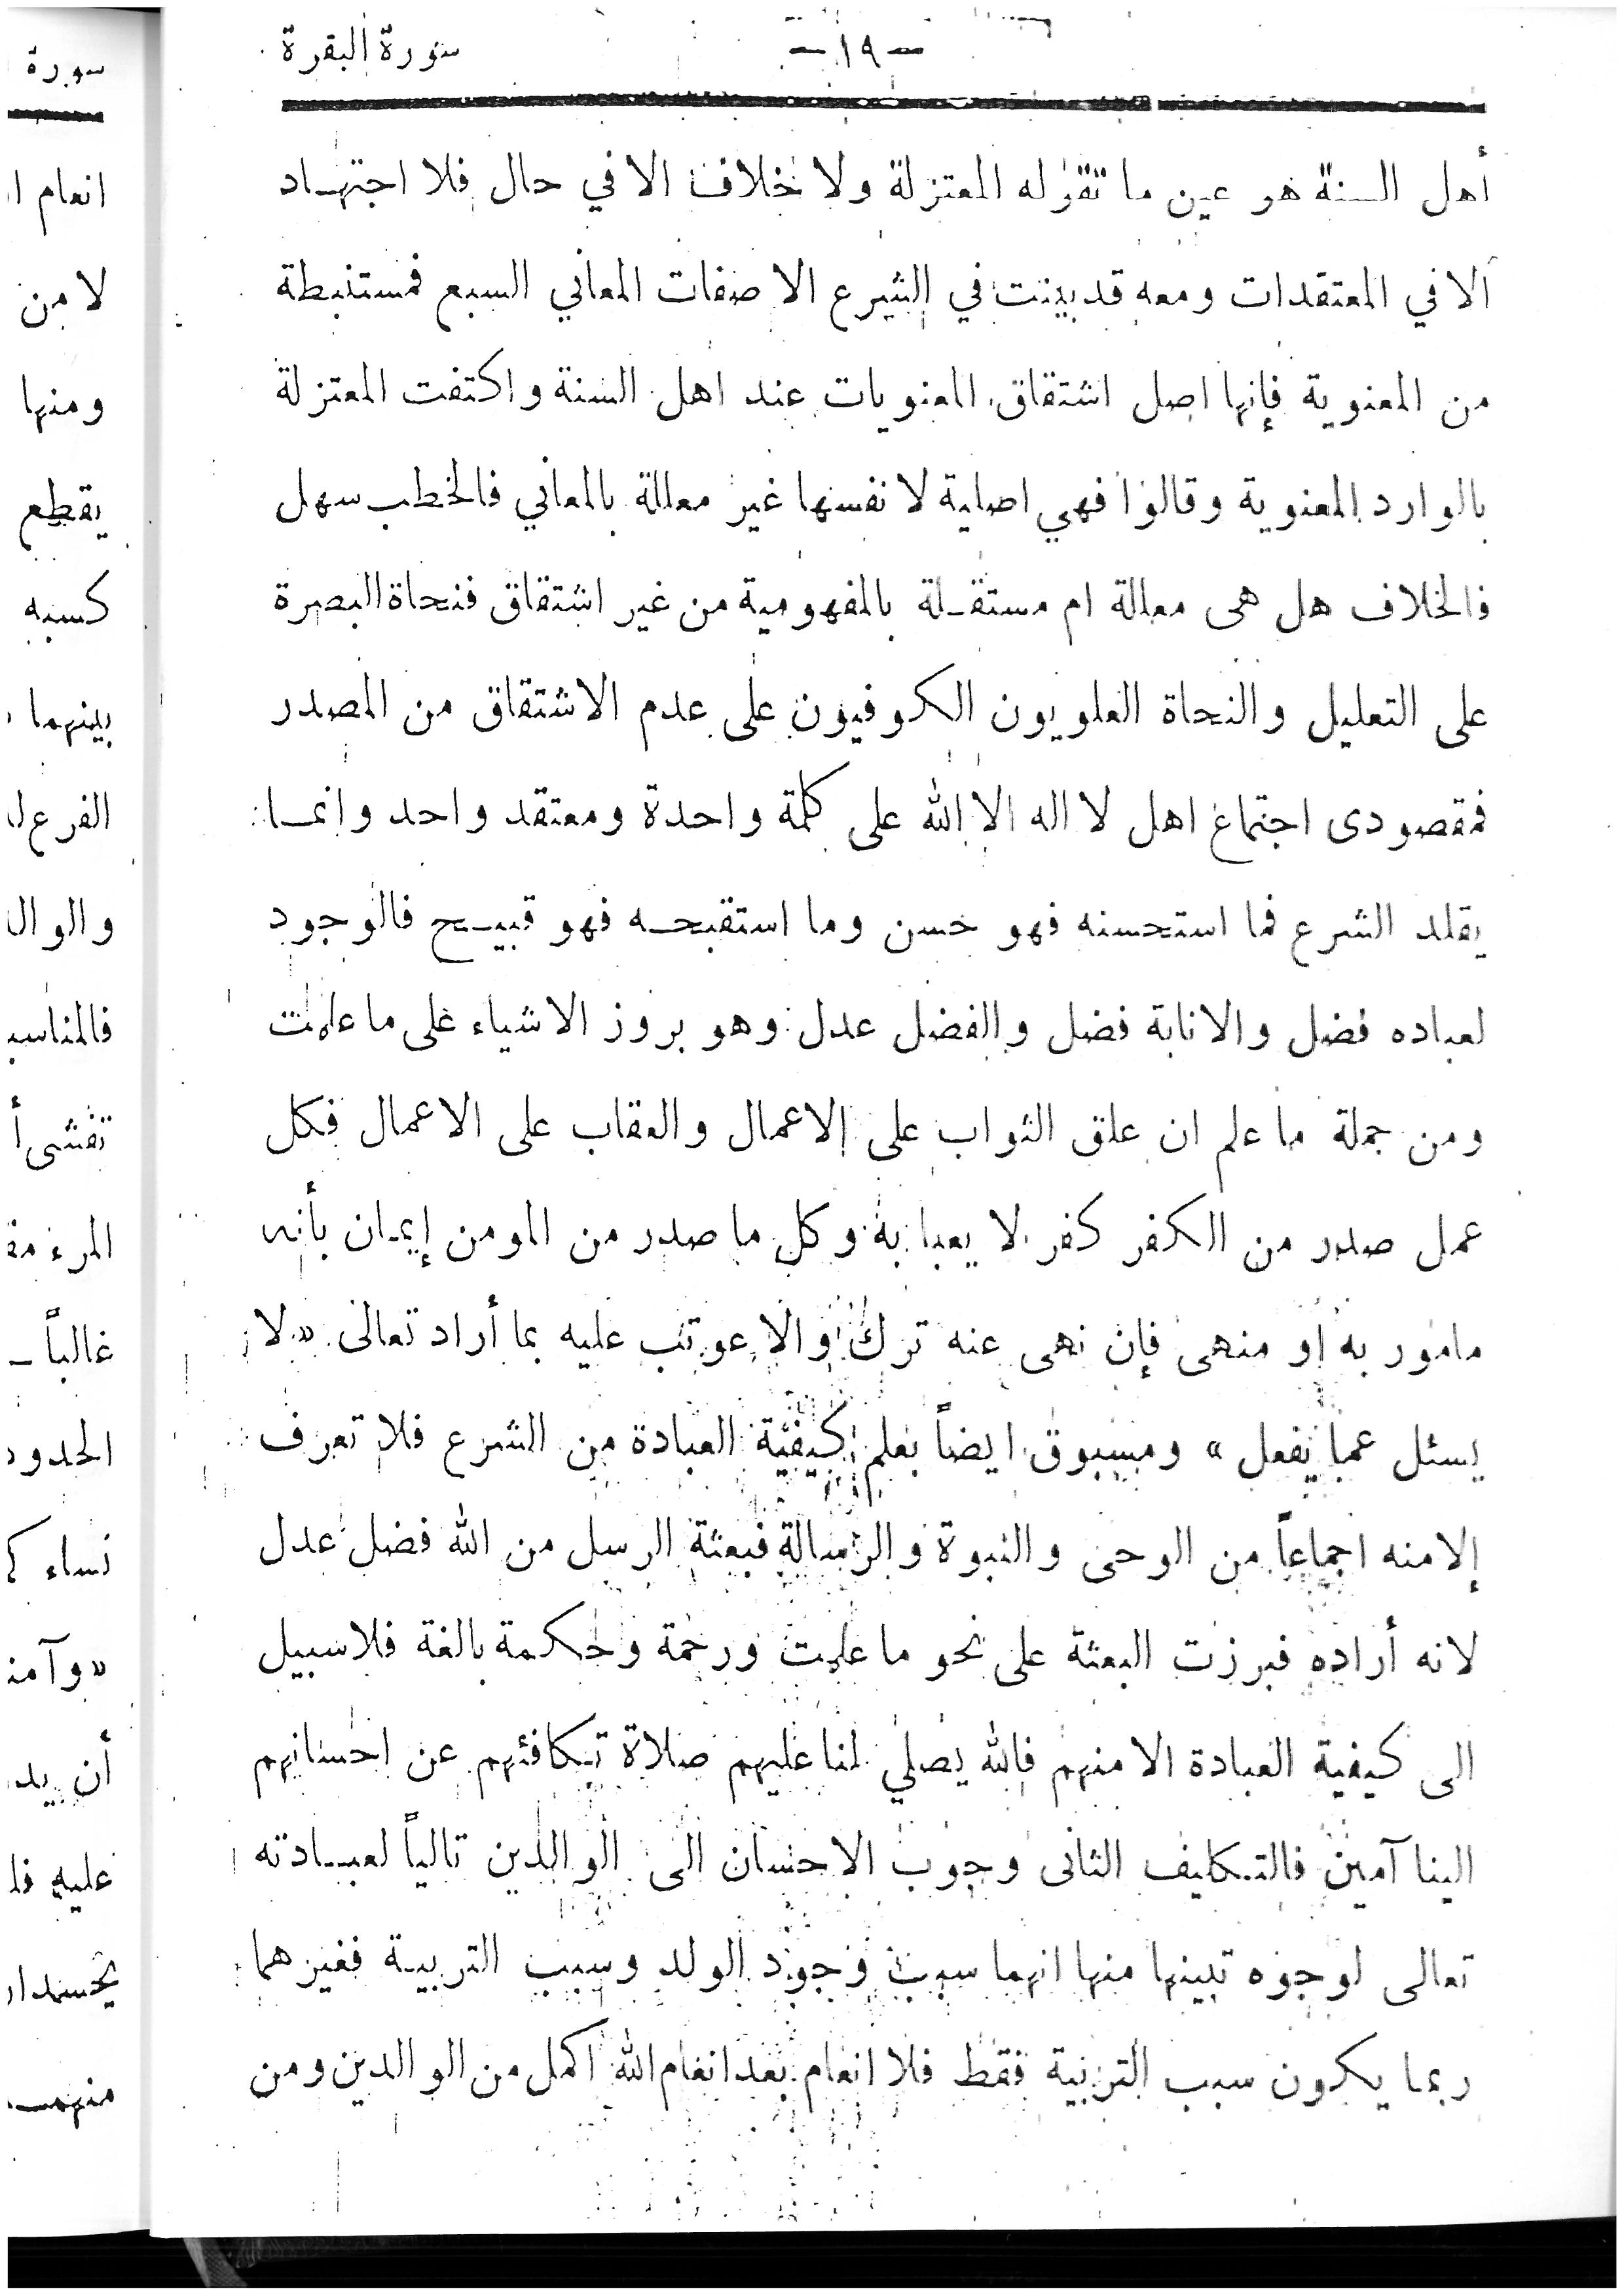 سورة البقرة
— ١٩ —
أهل السنة هو عين ما تقوله المعتزلة ولا خلاف الا في حال فلا اجتهاد
الا في المعتقدات ومعه قد بينت في الشرع الا صفات المعاني السبع فمستنبطة
من المعنوية فإنها اصل اشتقاق المعنويات عند اهل السنة واكتفت المعتزلة
بالوارد المعنوية وقالوا فهي اصلية لا نفسها غير معللة بالمعاني فالخطب سهل
فالخلاف هل هى معللة ام مستقلة بالمفهومية من غير اشتقاق فنحاة البصرة
على التعليل والنحاة العلويون الكوفيون على عدم الاشتقاق من المصدر
فمقصودى اجتماع اهل لا اله الا الله على كلمة واحدة ومعتقد واحد وانما
يقلد الشرع فما استحسنه فهو حسن وما استقبحه فهو قبيح فالوجود
لعباده فضل والانابة فضل والفضل عدل وهو بروز الاشياء على ما علمت
ومن جملة ما علم ان علق الثواب على الاعمال والعقاب على الاعمال فكل
عمل صدر من الكفر كفر لا يعبا به وكل ما صدر من المومن إيمان بأنه
مامور به او منهى فإن نهى عنه ترك والا عوتب عليه بما أراد تعالى « لا
يسئل عما يفعل » ومسبوق ايضاً بعلم كيفية العبادة من الشرع فلا تعرف
إلا منه اجماعاً من الوحى والنبوة والرسالة فبعثة الرسل من الله فضل عدل
لانه أراده فبرزت البعثة على نحو ما علمت ورحمة وحكمة بالغة فلا سبيل
الى كيفية العبادة الا منهم فالله يصلي لنا عليهم صلاة تكافئهم عن احسانهم
الينا آمين فالتكليف الثانى وجوب الاحسان الى الوالدين تالياً لعبادته
تعالى لوجوه تبينها منها انهما سبب وجود الولد وسبب التربية فغيرهما
ربما يكون سبب التربية فقط فلا انعام بعد انعام الله اكمل من الوالدين ومن
سورة
انعام
لا من
ومنها
يقطع
كسبه
بينهما
الفرع
والوال
فالمناسب
تفشى
المرء
غالباً
الحدود
نساء
« وآمن
أن
عليه
منهم